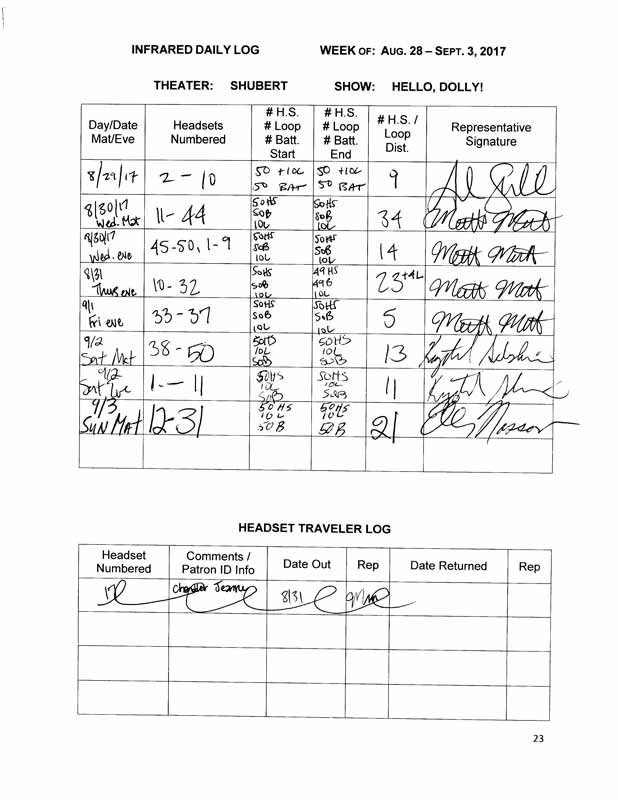 INFRARED DAILY LOG WEEK OF: AUG. 28 – SEPT. 3, 2017
THEATER: SHUBERT SHOW: HELLO, DOLLY!
Day/Date Mat/Eve Headsets Numbered # H.S. # Loop # Batt. Start # H.S. # Loop # Batt. End # H.S. / Loop Dist. Representative Signature
8/29/17 2 - 10 50 +10L 50 BAT 50 +10L 50 BAT 9
8/30/17 Wed. Mat 11- 44 50HS 50B 10L 50HS 50B 10L 34
8/30/17 Wed. eve 45-50, 1-9 50HS 50B 10L 50HS 50B 10L 14
8/31 Thurs eve 10-32 50HS 50B 10L 49HS 49B 10L 23+4L
9/1 Fri eve 33-37 50HS 50B 10L 50HS 50B 10L 5
9/2 Sat Mat 38-50 50HS 10L 50B 50HS 10L 50B 13 Krystal
9/2 Sat Eve 1-- 11 50HS 10L 50B 50HS 10L 50B 11 Krystal
9/3 SUN MAT 12-31 50HS 10L 50B 50HS 10L 50B 21
HEADSET TRAVELER LOG
Headset Numbered Comments / Patron ID Info Date Out Rep Date Returned Rep
17 8/31
23